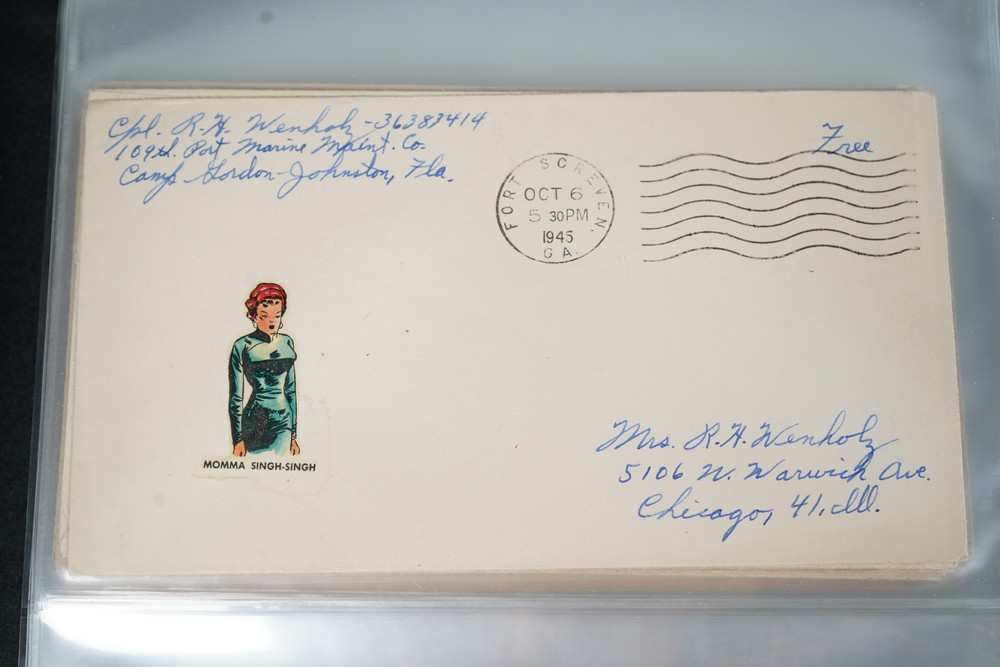 Cpl. R.H. Wenholz - 36383414
109th. Port Marine Maint. Co.
Camp Gordon-Johnston, Fla.
Free
FORT SCREVEN, GA.
OCT 6
5 30 PM
1945
MOMMA SINGH-SINGH
Mrs. R.H. Wenholz
5106 W. Warwick Ave.
Chicago, 41, Ill.